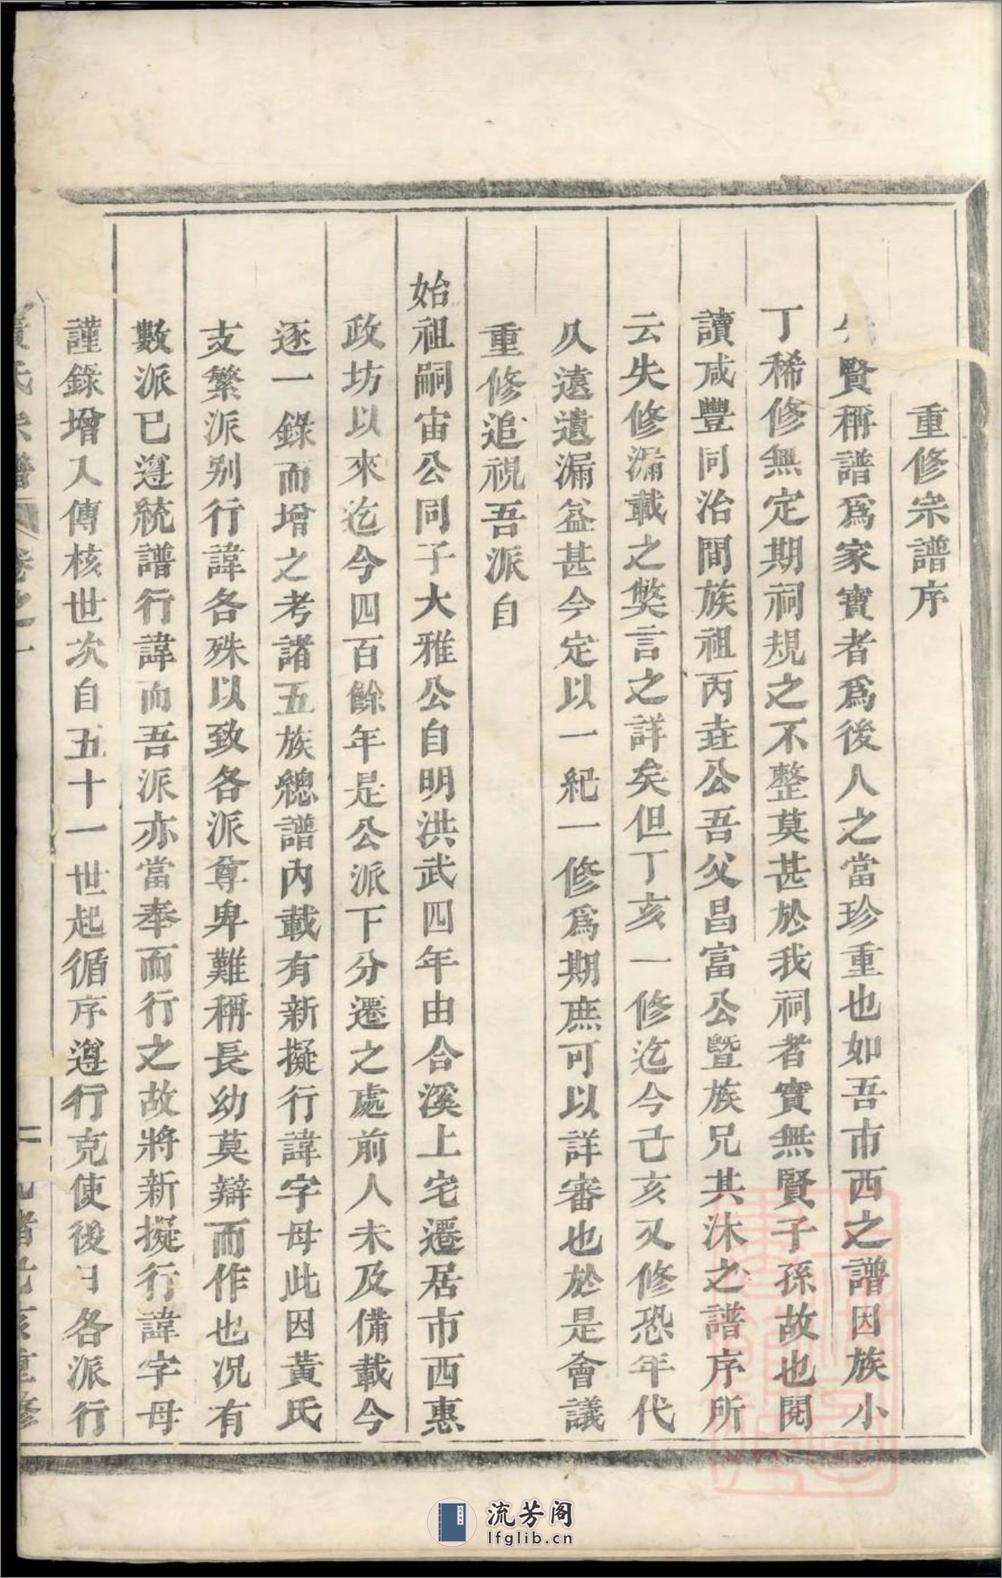 重修宗譜序
賢稱譜爲家寶者爲後人之當珍重也如吾市西之譜因族小
丁稀修無定期祠規之不整莫甚於我祠者實無賢子孫故也閱
讀咸豐同治間族祖丙垚公吾父昌富公暨族兄其沐之譜序所
云失修漏載之獘言之詳矣但丁亥一修迄今己亥又修恐年代
久遠遺漏益甚今定以一紀一修爲期庶可以詳審也於是會議
重修追視吾派自
始祖嗣宙公同子大雅公自明洪武四年由合溪上宅遷居市西惠
政坊以來迄今四百餘年是公派下分遷之處前人未及備載今
逐一錄而增之考諸五族總譜內載有新擬行諱字母此因黃氏
支繁派别行諱各殊以致各派尊卑難稱長幼莫辯而作也况有
數派已遵統譜行諱而吾派亦當奉而行之故將新擬行諱字母
謹錄增入傳核世次自五十一世起循序遵行克使後日各派行
黃氏宗譜 卷之一 光緒己亥重修
流芳阁
lfglib.cn